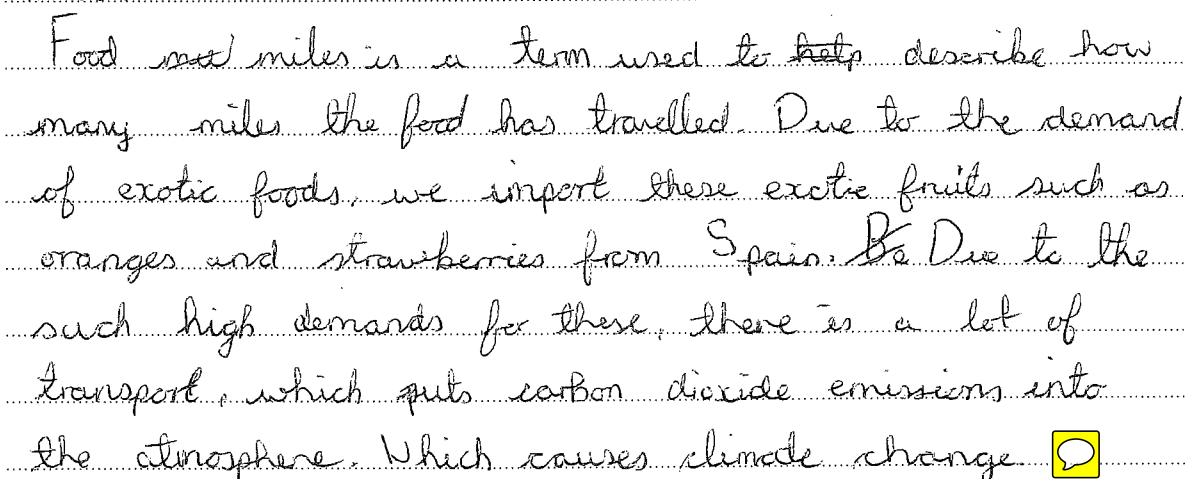 Food miles is a term used to describe how
many miles the food has travelled. Due to the demand
of exotic foods, we import these exotic fruits such as
oranges and strawberries from Spain. Due to the
such high demands for these, there is a lot of
transport, which puts carbon dioxide emissions into
the atmosphere. Which causes climate change.